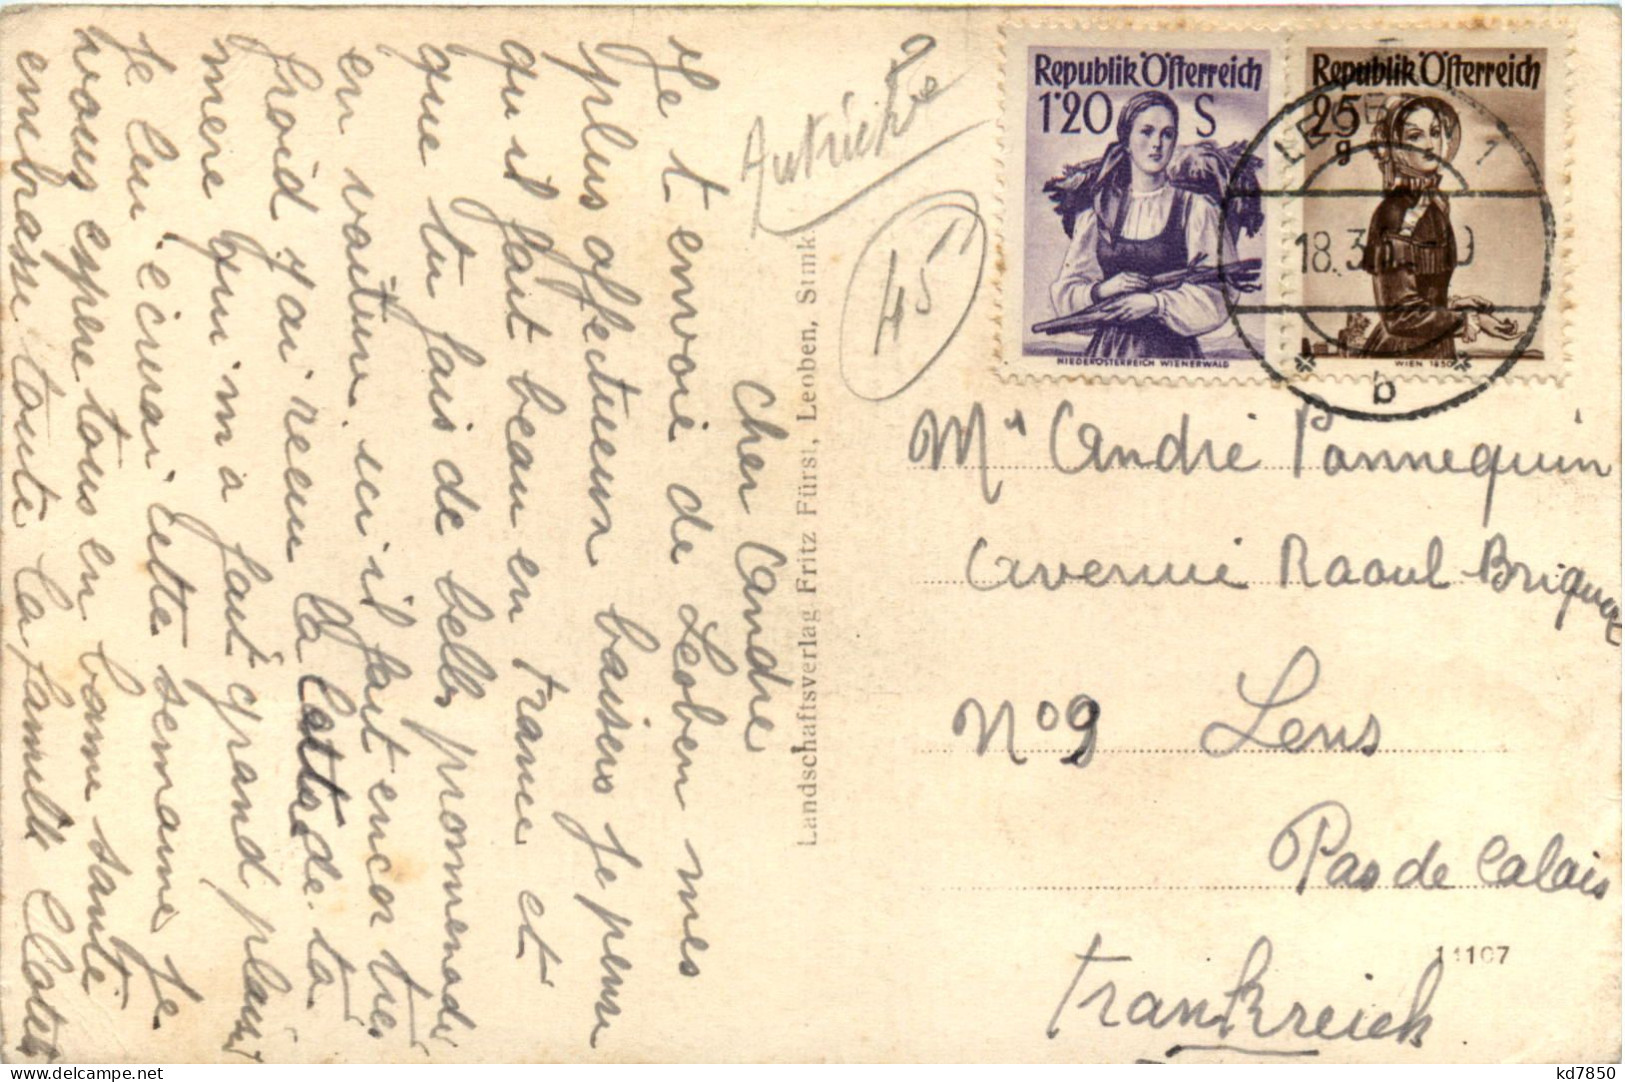 Cher André
Je t envoie de Leoben mes
plus affectueux baisers je pense
qu il fait beau en France et
que tu fais de belles promenades
en voiture, ici il fait encor très
froid j'ai recu la lettre de ta
mere qui m a fait grand plaisir
je lui ecirai cette semaine je
vous espere tous en bonne santé
embrasse toute la famille
Landschaftsverlag Fritz Fürst, Leoben, Stmk.
Autriche
45
Republik Österreich
1'20 S
NIEDERÖSTERREICH WIENERWALD
Republik Österreich
25 g
WIEN 1850
LEOBEN 1
18.3.
b
Mr André Pannequin
avenue Raoul Briquet
N° 9 Lens
Pas de Calais
11107
Frankreich
kd7850